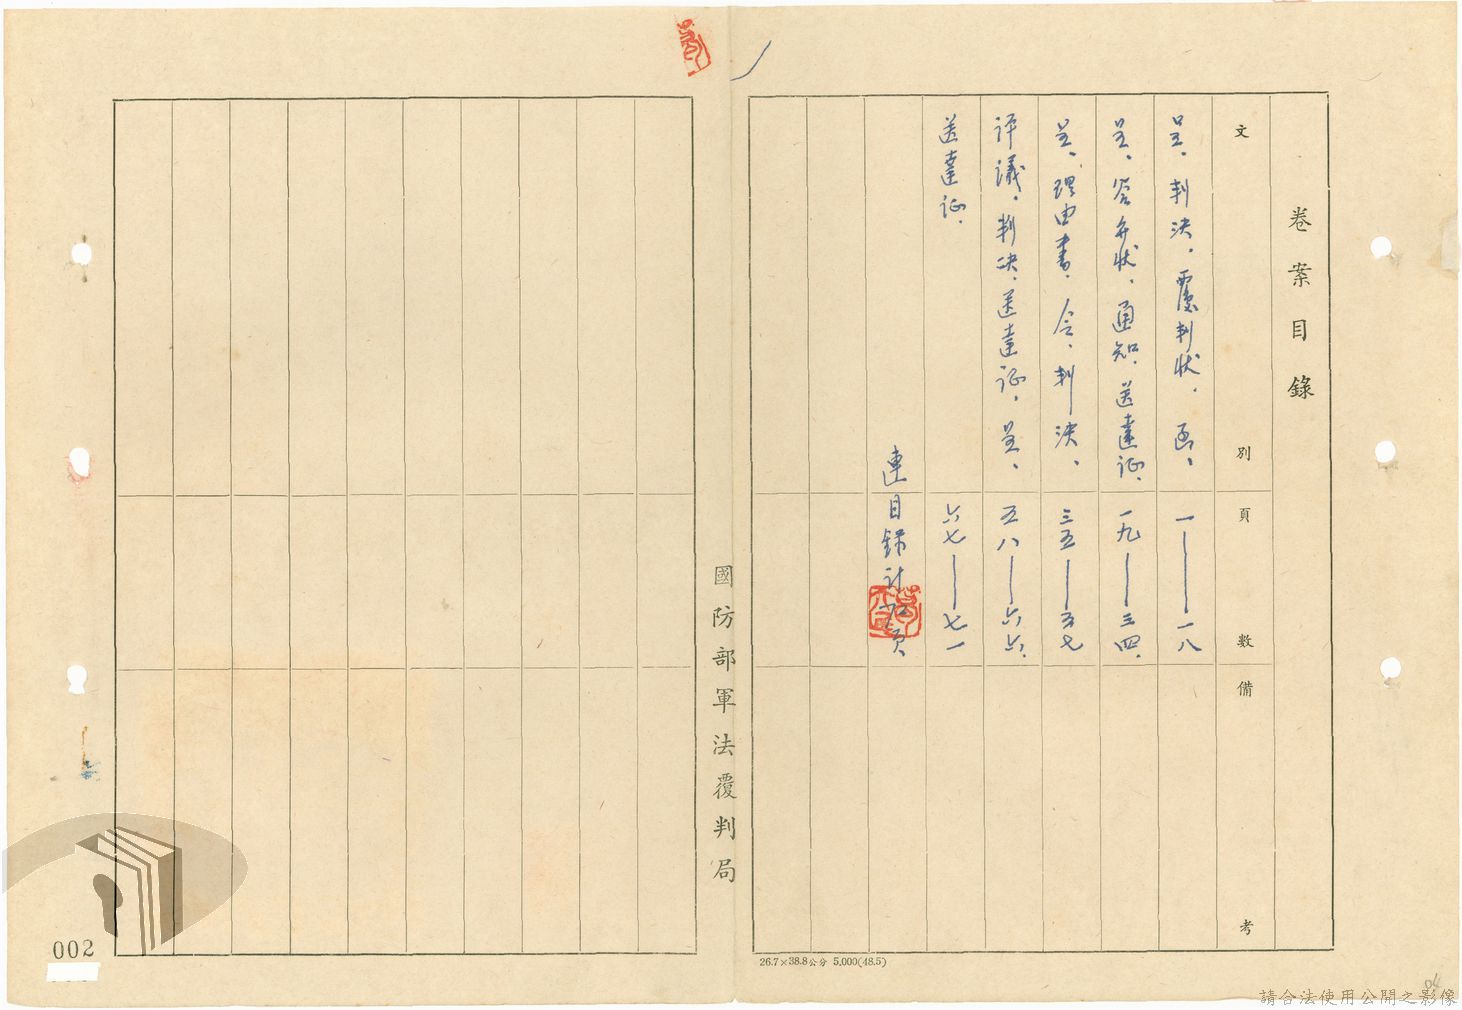 卷案目錄
文別
頁數
備考
呈、判決、覆判狀、函、
一——一八
呈、答弁狀、通知、送達证、
一九——三四、
呈、理由書、令、判決、
三五——五七
評議、判決、送達证、呈、
五八——六六、
送達证、
六七——七一
連目錄計 頁、
國防部軍法覆判局
26.7×38.8公分 5,000(48.5)
002
請合法使用公開之影像